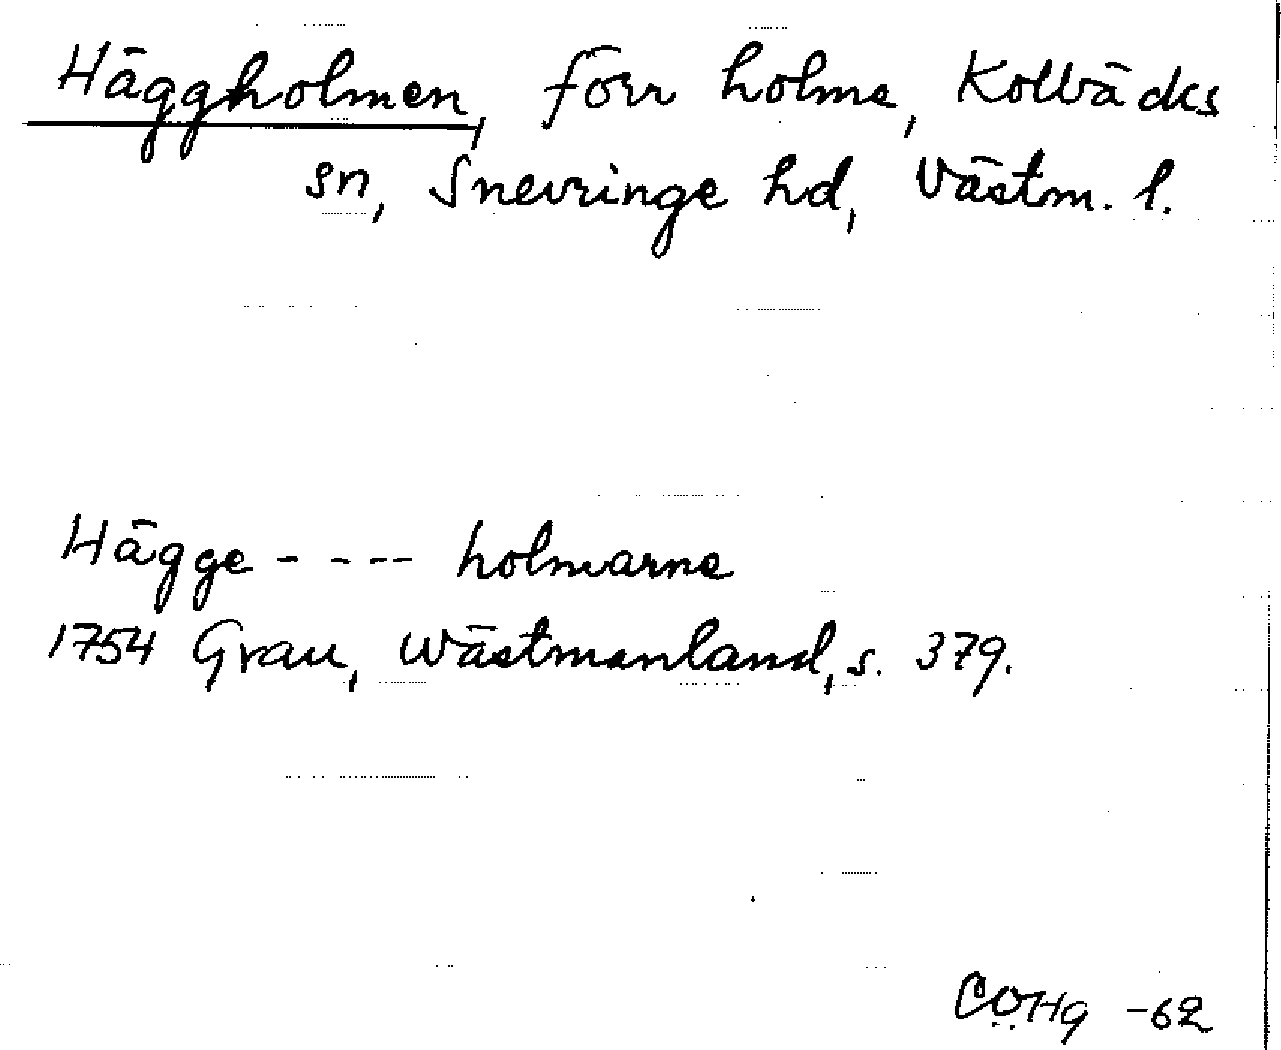 Häggholmen, förr holme, Kolbäcks
sn, Snevringe hd, Västm. l.
Hägge - - - - holmarne
1754 Grau, Wästmanland, s. 379.
CÖHg -62